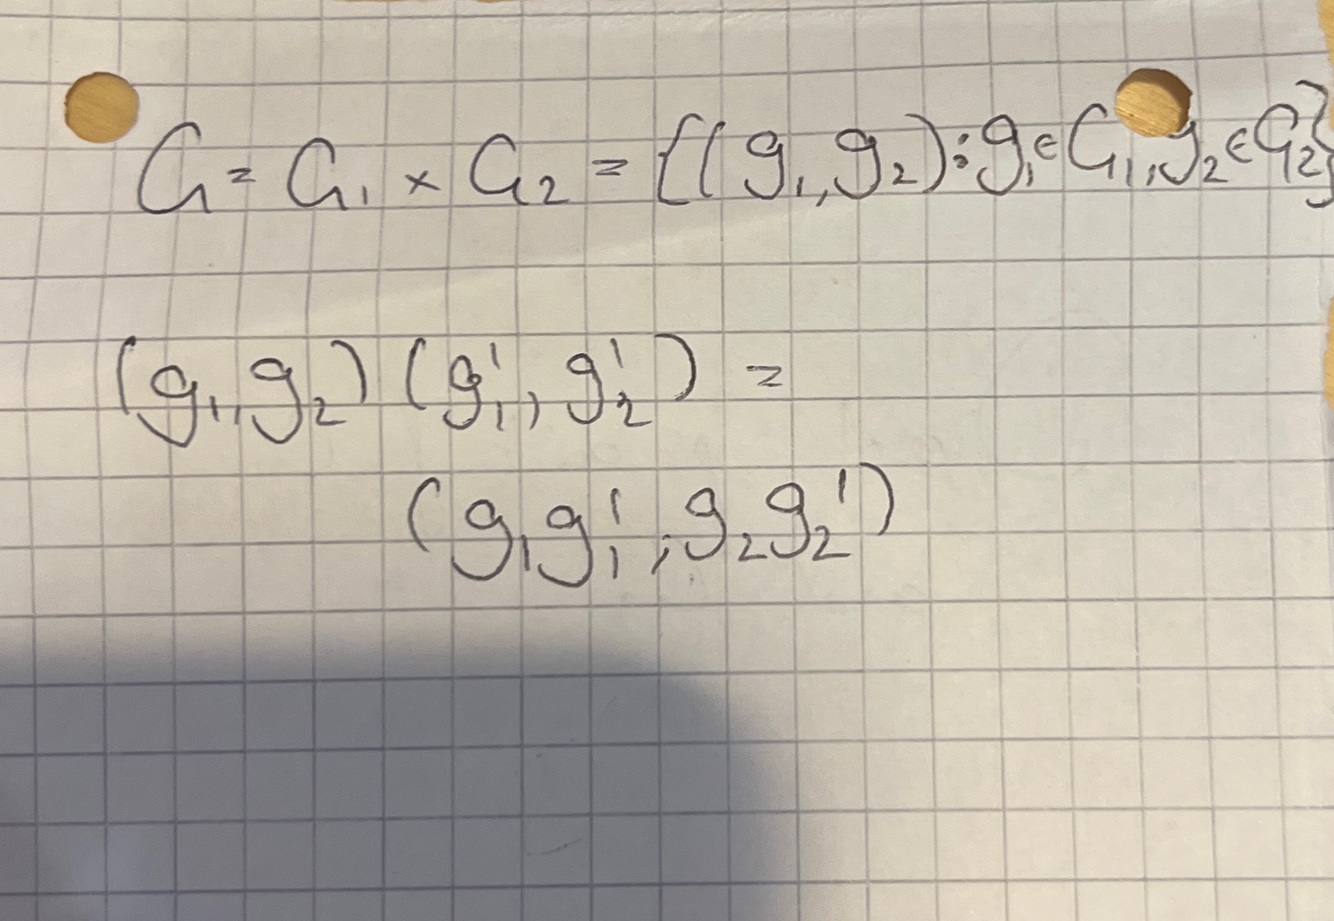 G = G₁ × G₂ = {(g₁, g₂) : g₁ ∈ G₁, g₂ ∈ G₂}
(g₁, g₂) (g₁', g₂') =
(g₁g₁', g₂g₂')